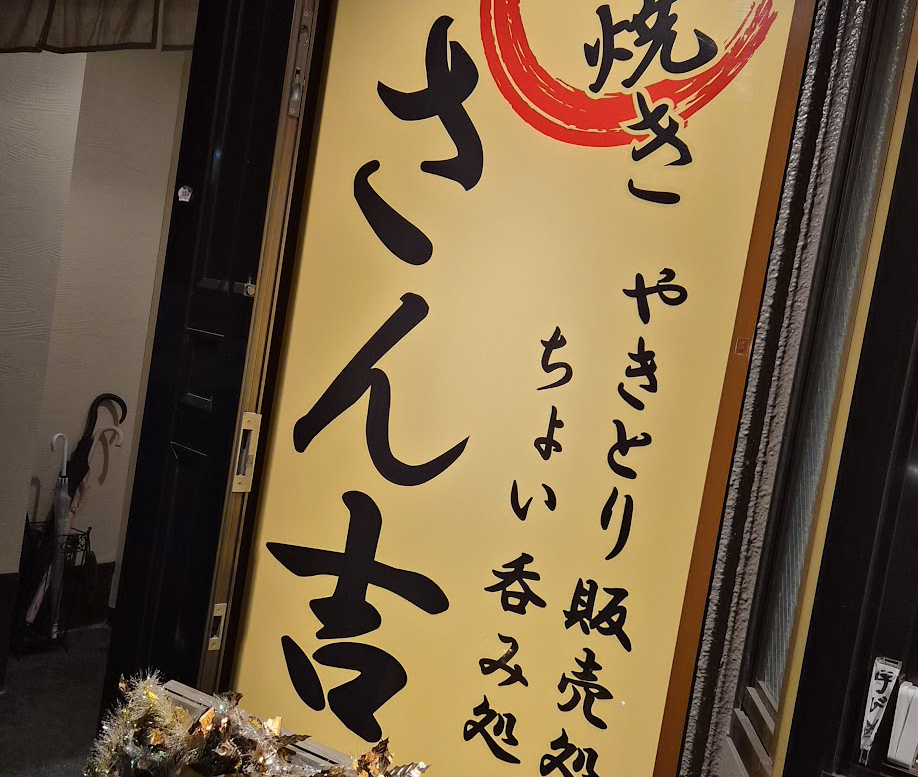 焼き
やきとり販売処
ちょい呑み処
さん吉